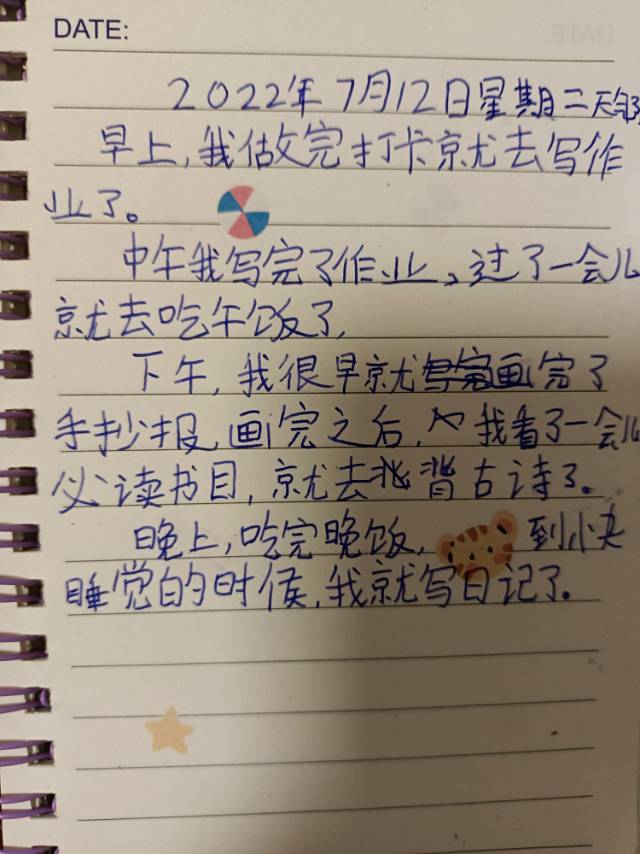 DATE:
2022年7月12日星期二天
早上,我做完打卡就去写作
业了。
中午我写完了作业,过了一会儿
就去吃午饭了,
下午,我很早就画完了
手抄报,画完之后,我看了一会儿
必读书目,就去背古诗了。
晚上,吃完晚饭,到小夫
睡觉的时候,我就写日记了。